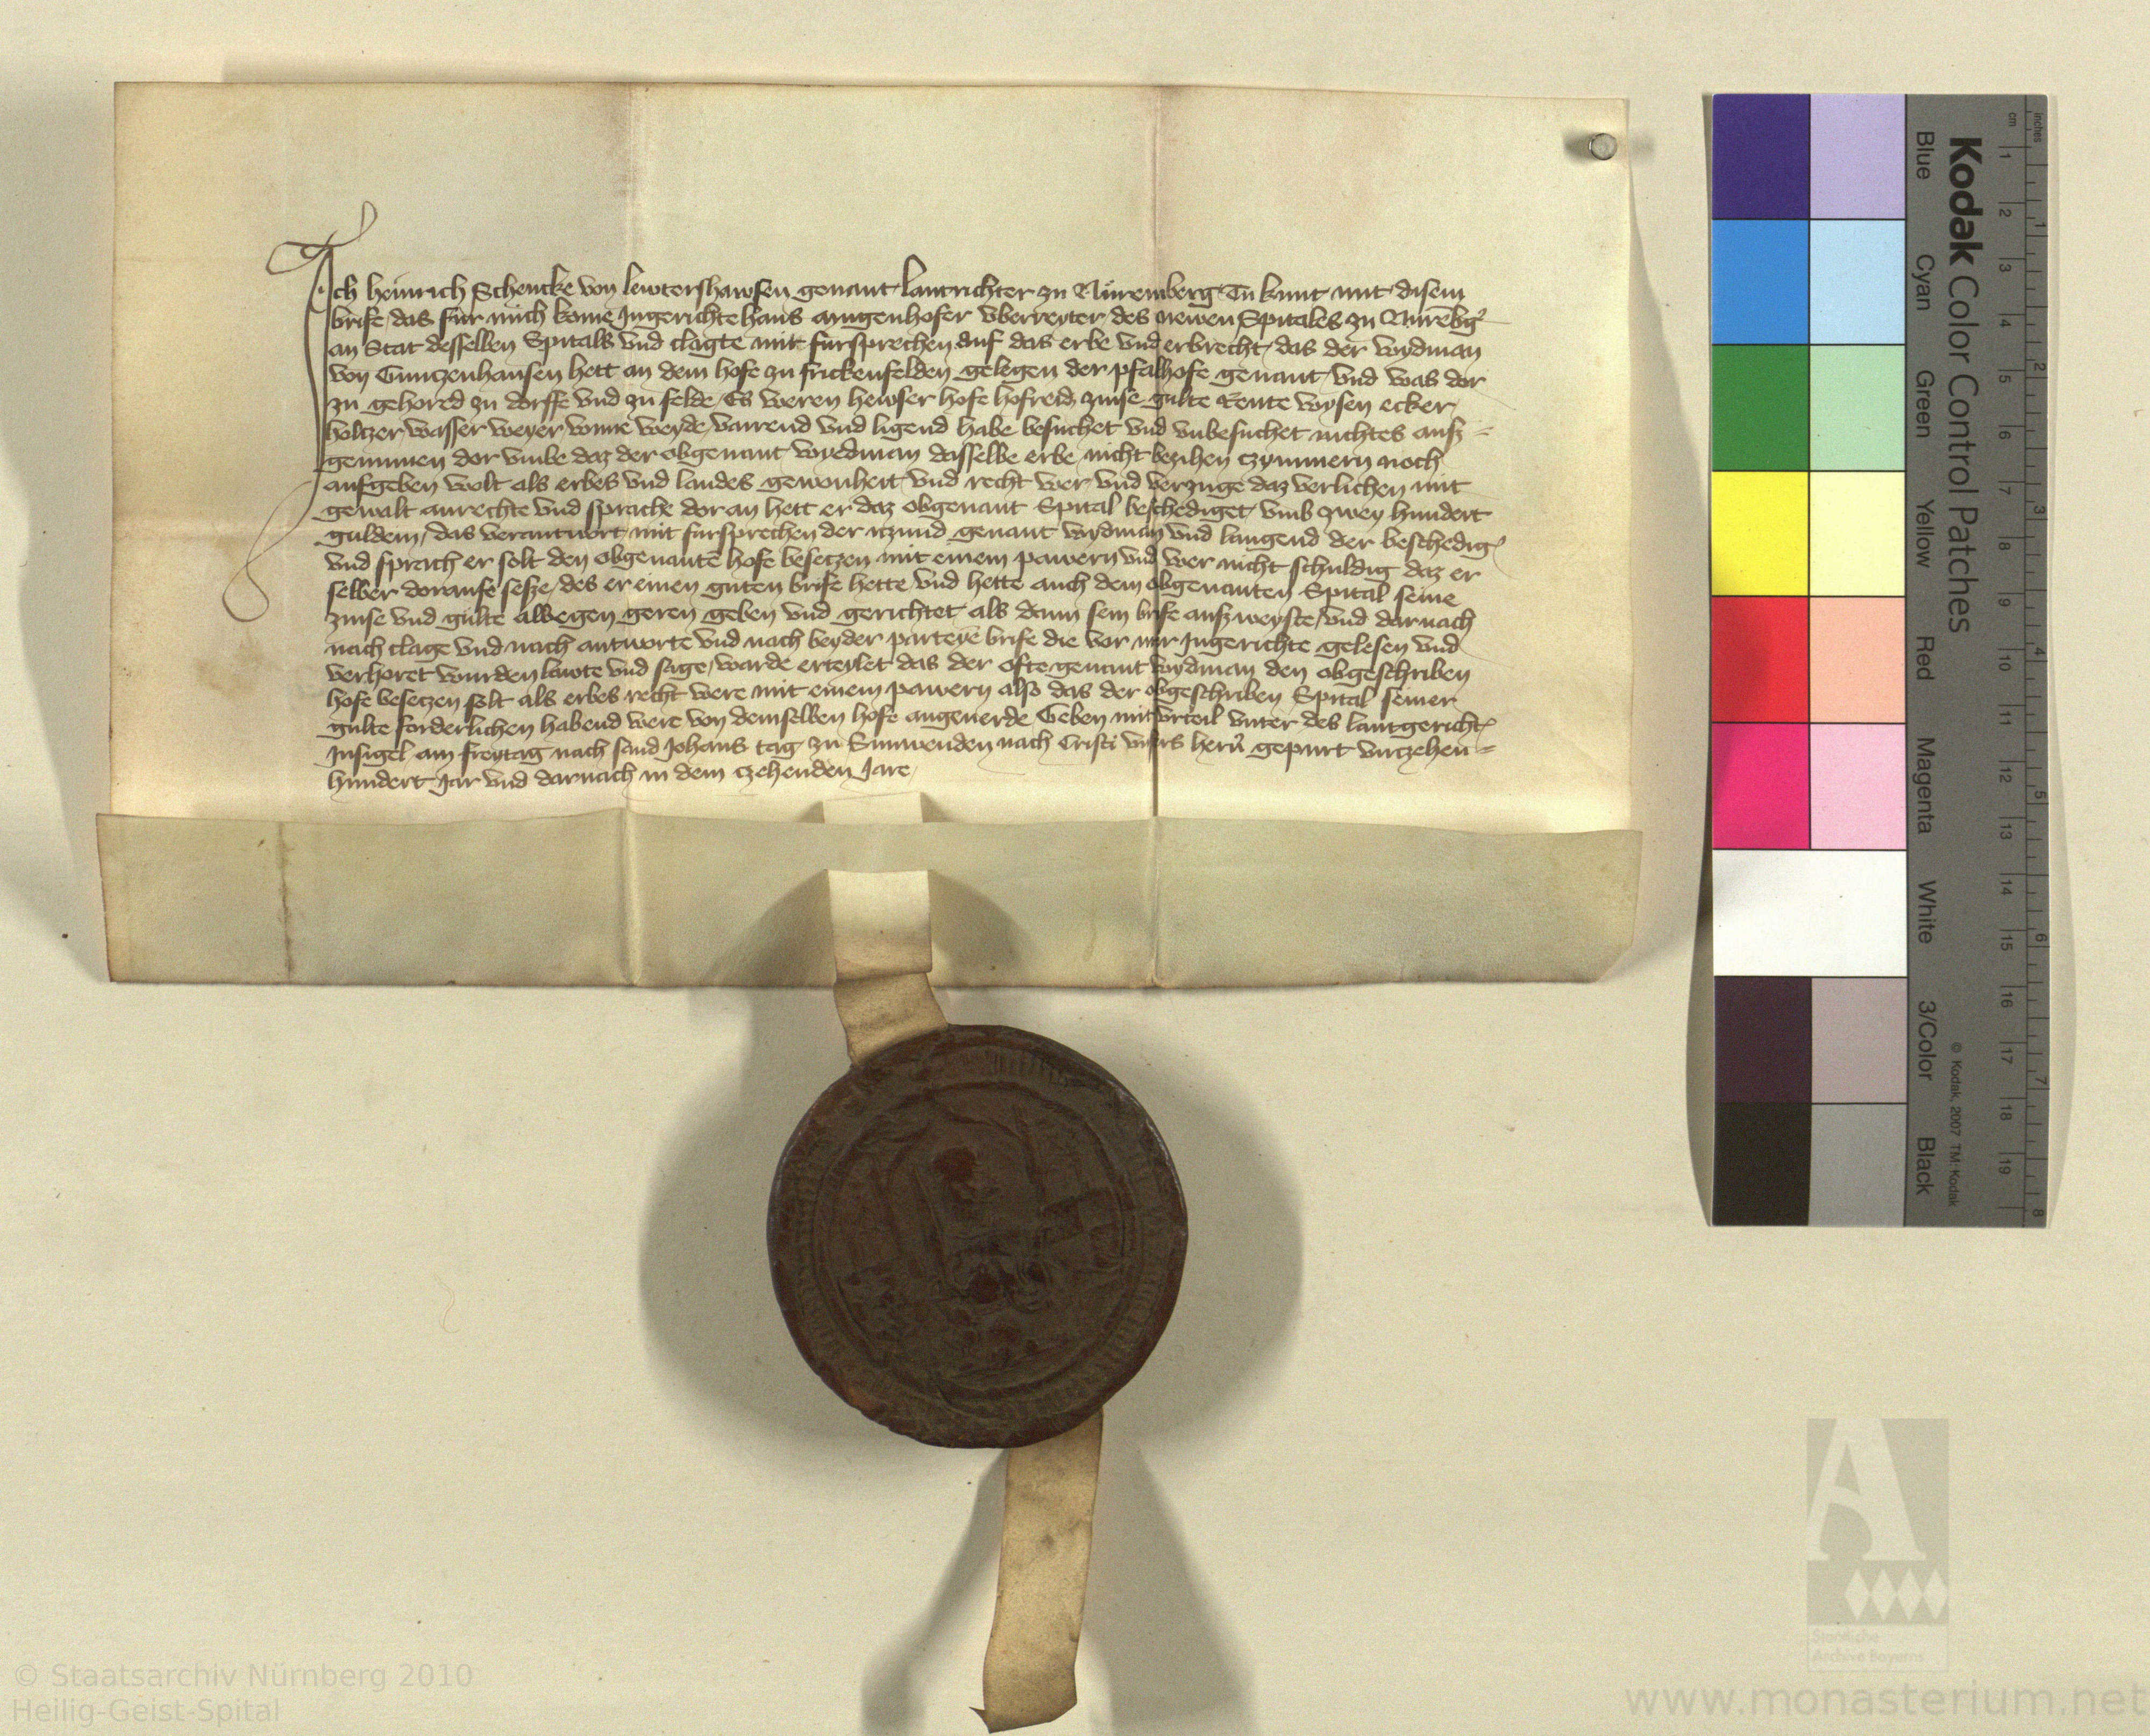 Ich heinrich Schencke von lewtershawsen genant lantrichter zu Nuremberg Tu kunt mit disem
brife, das fur mich kome Ingerichte hans amgenhofer vberreyter des newen Spitales zu Nurēbg
an Stat desselben Spitals vnd clagte mit fursprechen auf das erbe vnd erbrecht, das der wydman
von Guntzenhausen hett an dem hofe zu frickenfelden gelegen der pfalhofe genant, vnd was dor
zu gehored zu dorffe vnd zu felde, Es weren hewser hofe hofreid, zinse gulte Rente wysen ecker
holtzer, wasser weyer wnne weyde, varend vnd ligend habe besuchet vnd vnbesuchet nichtes ausz=
genumen dor vmbe daz der obgenant wydman dasselbe erbe nicht bezihen czymmern noch
aufgeben wolt als erbes vnd landes gewonheit vnd recht wer vnd verzuge daz verlichen mit
gewalt anrechte vnd sprache dor an hett er daz obgenant Spital beschediget, vmb zwey hundert
guldein, das verantwort mit fursprechen der itzund genant wydman vnd laugend der beschedig
vnd sprach er solt den obgenantē hofe besetzen mit einem pawern vnd wer nicht schuldig daz er
selber doraufe sesze, des er einen guten brife hette vnd hette auch dem obgenanten Spital seine
zinse vnd gulte alwegen geren geben vnd gerichtet als dann sein brife auszweyste, vnd darnach
nach clage vnd nach antworte vnd nach beyder parteyē brife die vor mir Ingerichte gelesen vnd
verhoret wurden lawte vnd sage, warde erteylet das der oftegenant wydman den obgeschriben
hofe besetzen solt als erbes recht were mit einem pawern also das der obgeschriben Spital seiner
gulte forderlichen habend were von demselben hofe angeuerde Geben mit vrteil vnter des lantgericht
Insigel am freytag nach sand Johans tag zu Sunwenden nach Cristi vnsers herñ gepurt virtzehen=
hundert Jar vnd darnach in dem czehenden Jare,
inches
cm
1 2 3 4 5 6 7 8 9 10 11 12 13 14 15 16 17 18 19
1 2 3 4 5 6 7 8
Kodak Color Control Patches
© Kodak, 2007 TM: Kodak
Blue Cyan Green Yellow Red Magenta White 3/Color Black
Staatliche
Archive Bayerns
© Staatsarchiv Nürnberg 2010
Heilig-Geist-Spital
www.monasterium.net